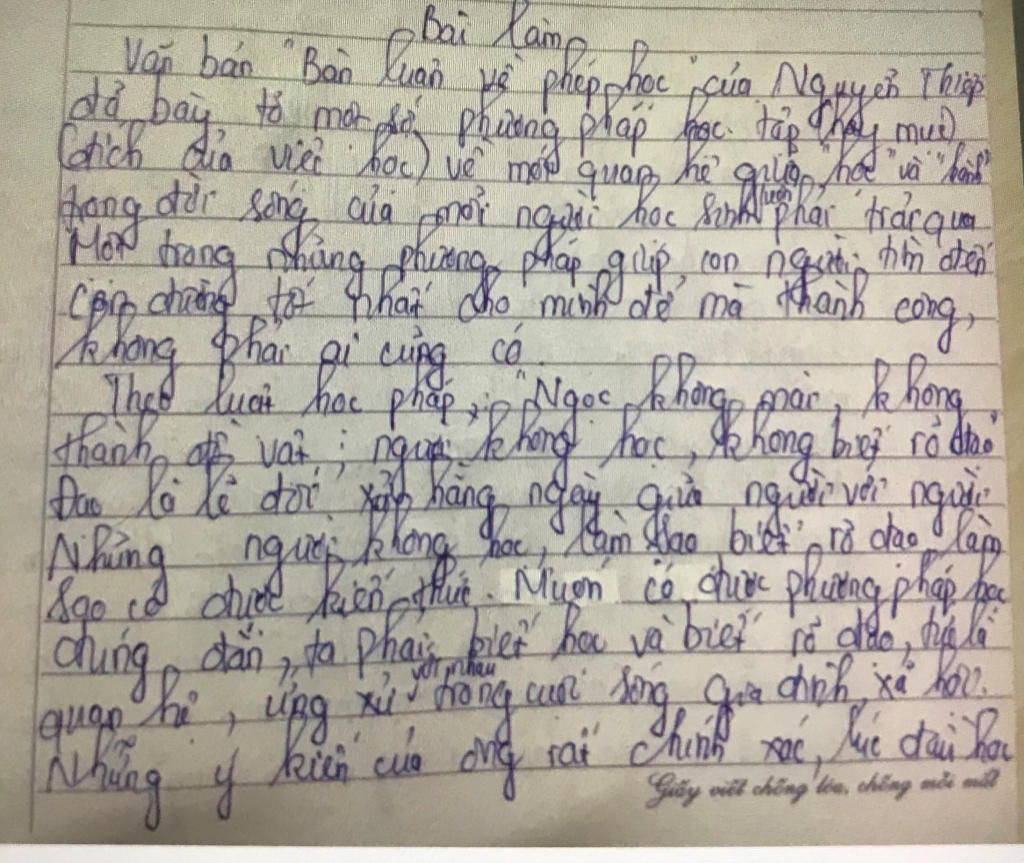 Bài làm
Văn bản "Bàn luận về phép học" của Nguyễn Thiếp
đã bày tỏ một số phương pháp học tập (hay mục
đích của việc học) về mối quan hệ giữa "học" và "hành"
trong đời sống của mỗi người học sinh luôn phải trải qua
Một trong những phương pháp giúp con người tìm đến
con đường tốt nhất cho mình để mà thành công,
không phải ai cũng có.
Theo luật học pháp, : "Ngọc không mài, không
thành đồ vật ; người không học, không biết rõ đạo"
Đạo là lẽ đối xử hàng ngày giữa người với người
Những người không học, làm sao biết rõ đạo, làm
sao có được kiến thức. Muốn có được phương pháp học
đúng đắn, ta phải biết học và biết rõ đạo, tức là
quan hệ, ứng xử với nhau trong cuộc sống gia đình, xã hội.
Những ý kiến của ông rất chính xác, lúc đầu học
Giấy viết chống lóa, chống mỏi mắt